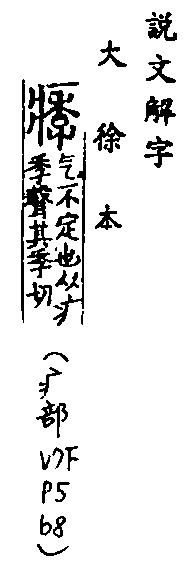 説文解字
大徐本
痵
气不定也从疒
季聲其季切
(疒部
V7下
P5
b8)